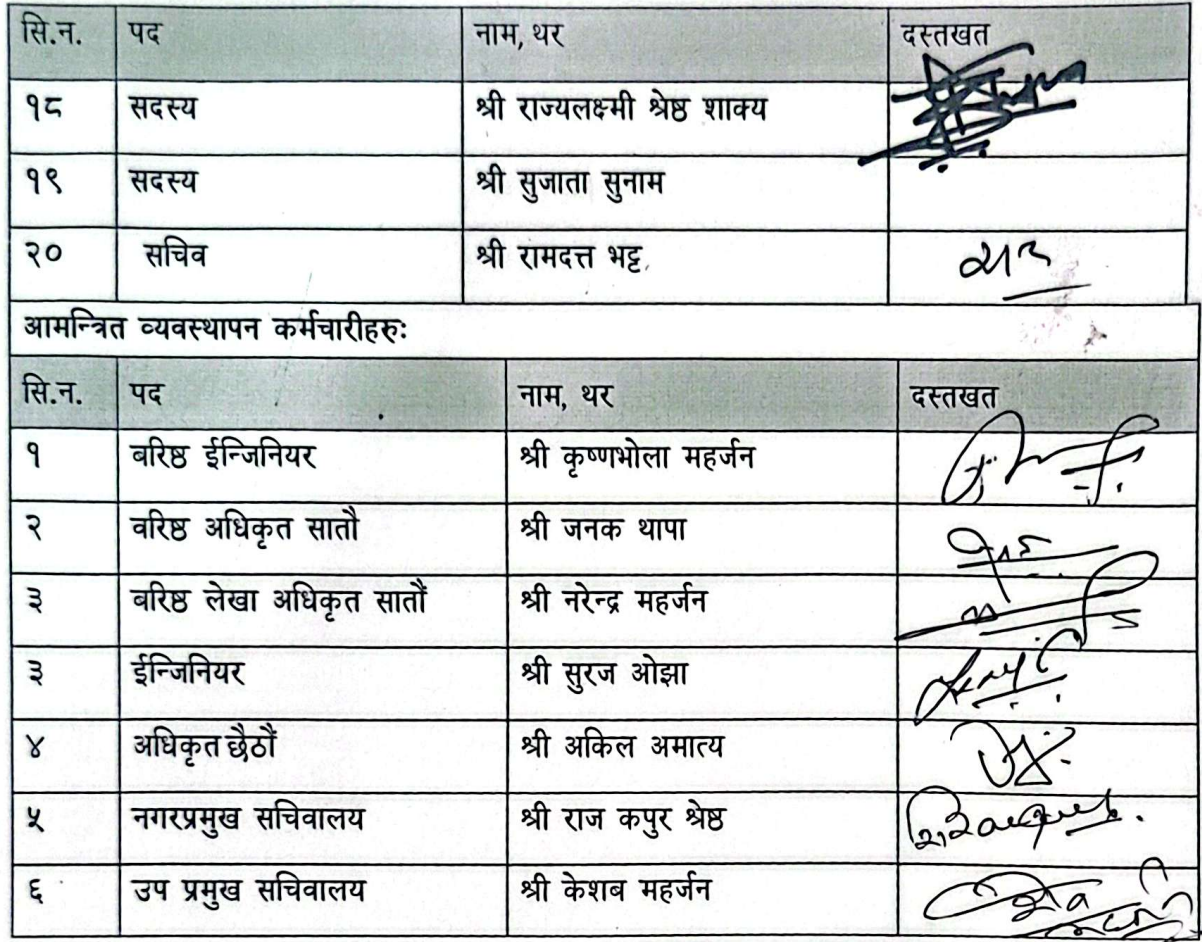 सि.न. पद नाम, थर दस्तखत
१८ सदस्य श्री राज्यलक्ष्मी श्रेष्ठ शाक्य
१९ सदस्य श्री सुजाता सुनाम
२० सचिव श्री रामदत्त भट्ट
आमन्त्रित व्यवस्थापन कर्मचारीहरुः
सि.न. पद नाम, थर दस्तखत
१ बरिष्ठ ईन्जिनियर श्री कृष्णभोला महर्जन
२ वरिष्ठ अधिकृत सातौ श्री जनक थापा
३ बरिष्ठ लेखा अधिकृत सातौं श्री नरेन्द्र महर्जन
३ ईन्जिनियर श्री सुरज ओझा
४ अधिकृत छैठौं श्री अकिल अमात्य
५ नगरप्रमुख सचिवालय श्री राज कपुर श्रेष्ठ
६ उप प्रमुख सचिवालय श्री केशब महर्जन